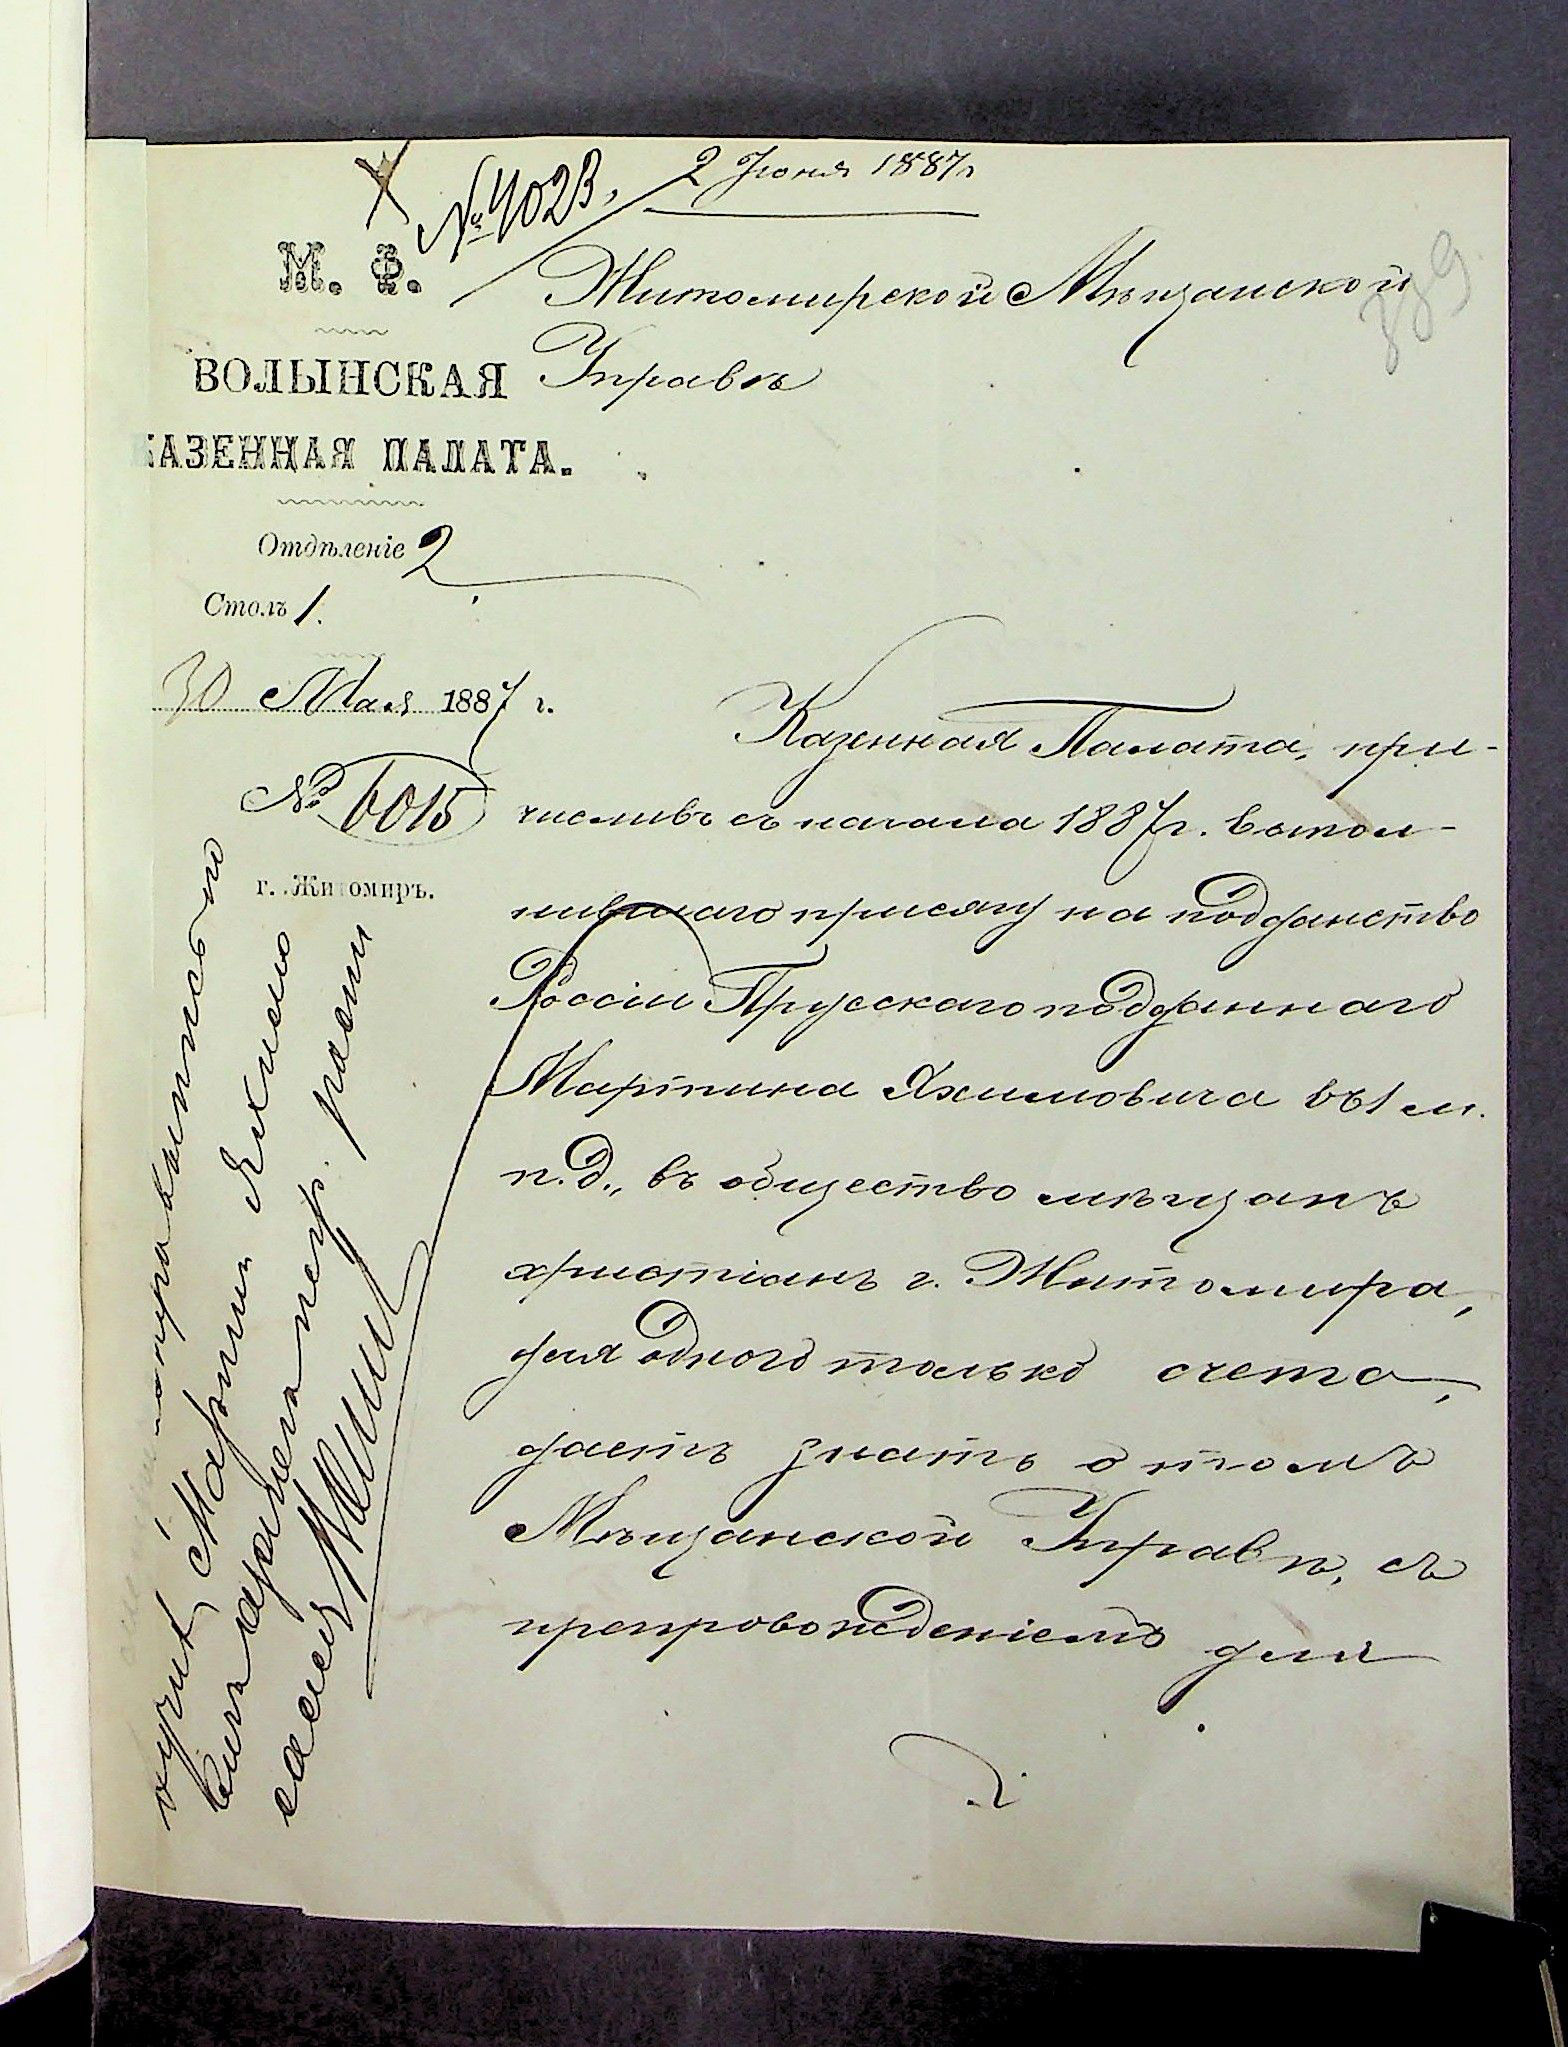 № 4023, 2 Іюня 1887 г
М. Ф.
ВОЛЫНСКАЯ
КАЗЕННАЯ ПАЛАТА.
Отдѣленіе 2
Столъ 1.
30 Мая 1887 г.
№ 6015
г. Житомиръ.
Житомирской Мѣщанской
Управѣ
Казенная Палата, при-
числивъ съ начала 1887 г. выпол-
нившаго присягу на подданство
Россіи Прусскаго подданнаго
Мартина Яхимовича въ 1 м.
п. д., въ общество мѣщанъ
христіанъ г. Житомира,
для одного только счета,
даетъ знать о томъ
Мѣщанской Управѣ, съ
препровожденіемъ для
Мартин Яхимо